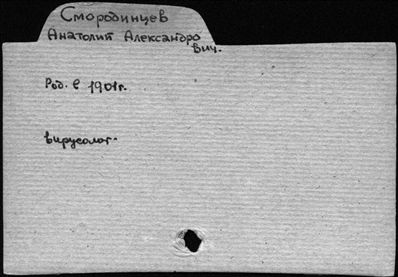 Смородинцев
Анатолий Александро
вич.
Род. в 1901г.
вирусолог.